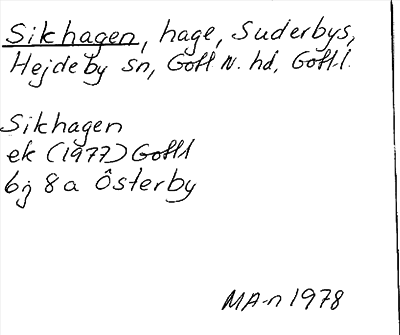 Sikhagen, hage, Suderbys,
Hejdeby sn, Gotl N. hd, Gotl.l.
Sikhagen
ek (1977) Gotl l
6j 8 a Österby
MA-n 1978